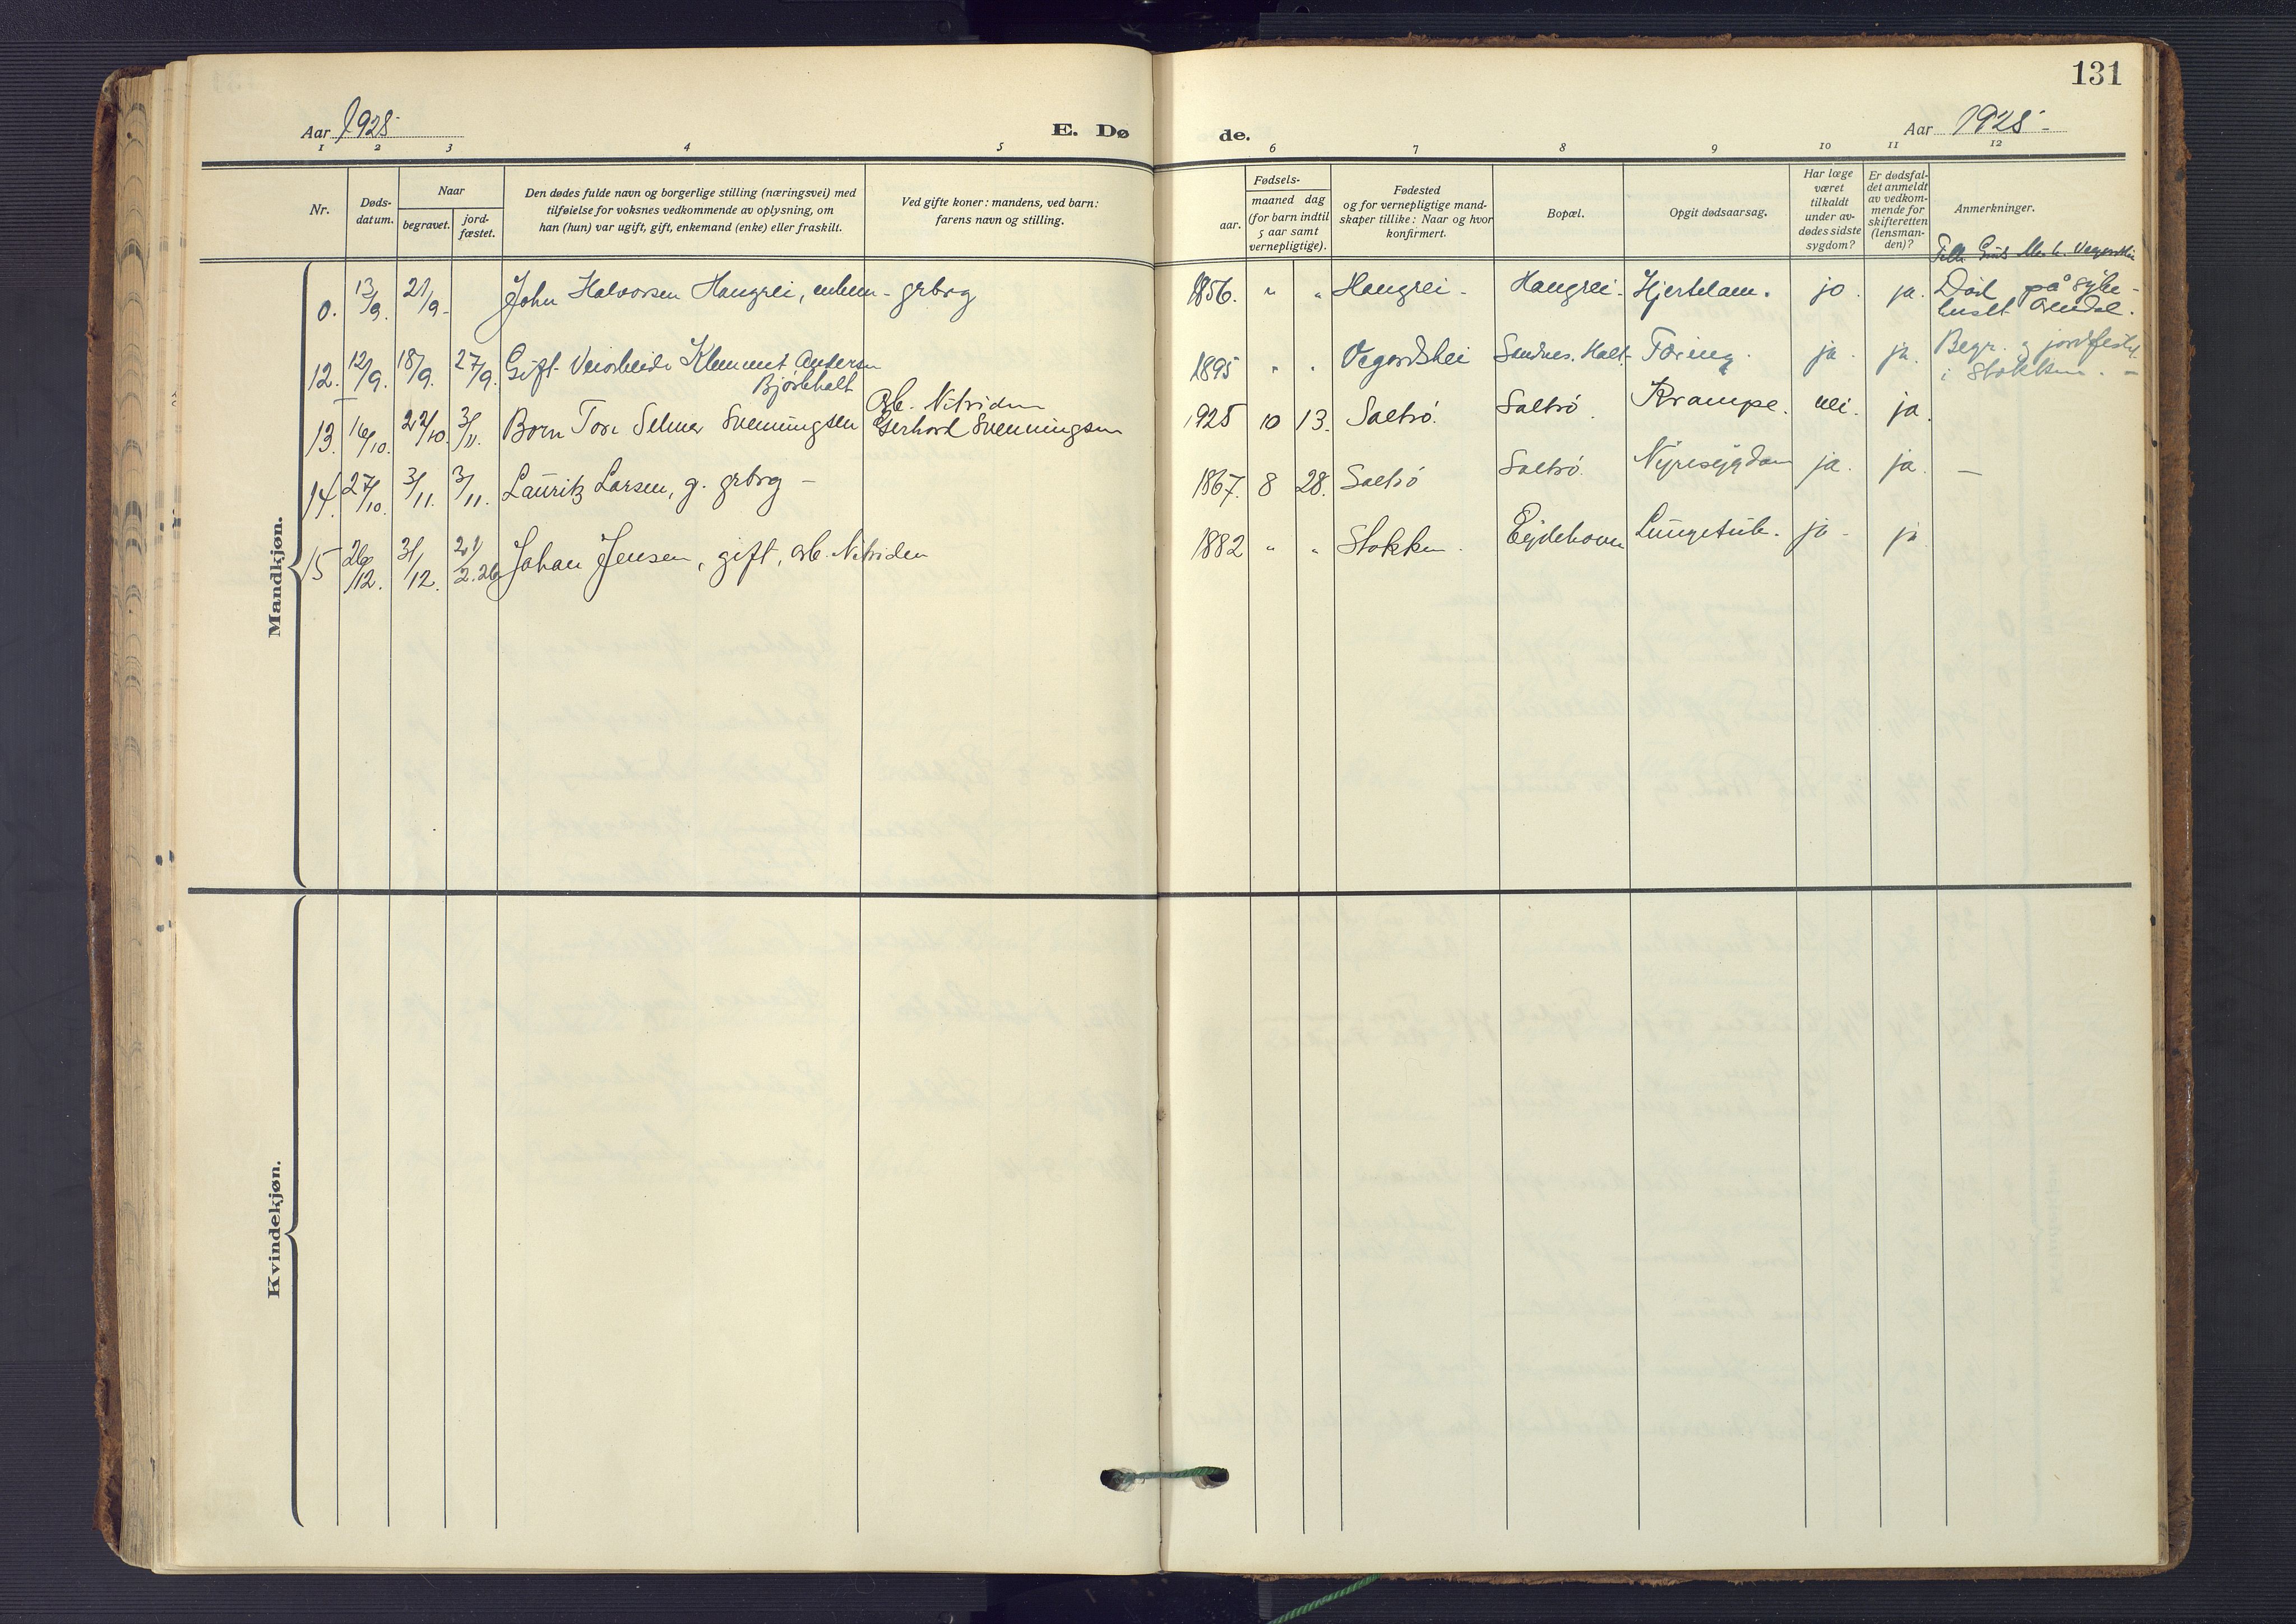 131
Aar 1925
E. Dø
de.
Aar 1925 -
1 2 3 4 5 6 7 8 9 10 11 12
Nr.
Døds-
datum.
Naar
begravet.
jord-
fæstet.
Den dødes fulde navn og borgerlige stilling (næringsvei) med
tilføielse for voksnes vedkommende av oplysning, om
han (hun) var ugift, gift, enkemand (enke) eller fraskilt.
Ved gifte koner: mandens, ved barn:
farens navn og stilling.
Fødsels-
aar.
maaned dag
(for barn indtil
5 aar samt
vernepligtige).
Fødested
og for vernepligtige mand-
skaper tillike: Naar og hvor
konfirmert.
Bopæl.
Opgit dødsaarsag.
Har læge
været
tilkaldt
under av-
dødes sidste
sygdom?
Er dødsfal-
det anmeldt
av vedkom-
mende for
skifteretten
(lensman-
den)?
Anmerkninger.
Mandkjøn.
0. 13/9. 21/9- John Halvorsen Haugrei, enkem - grbrg 1856. " " Haugrei - Haugrei - Hjertelam. jo. ja. Død på syke-
huset Arendal.
12. 12/9. 18/9. 27/9. Gift Veiarbeide Klemmet Andersen
Bjørkholt
1895 " " Vegordshei Sandnes. Holt - Tæring. ja. ja. Begr. og jordfestet
i Stokken. -
13. 16/10. 22/10. 3/11. Barn Tore Selmer Svenningsen
Arb. Nitriden
Gerhard Svenningsen
1925 10 13. Saltrö. Saltrö. Krampe. nei. ja.
14. 27/10. 3/11. 3/11. Lauritz Larsen, g. grbrg - 1867. 8 28. Saltrö Saltrö. Nyresygdom ja. ja. -
15 26/12. 31/12. 21/2.26 Johan Jensen, gift, arb. Nitriden 1882 " " Stokken. Eydehavn Lungetub. ja - ja
Kvindekjøn.